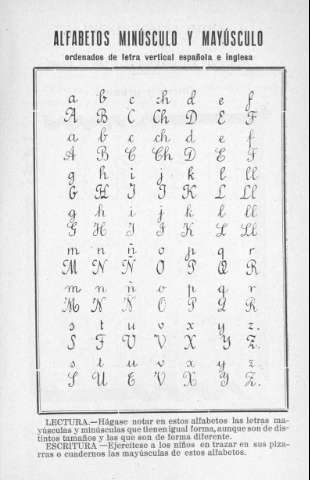 ALFABETOS MINÚSCULO Y MAYÚSCULO
ordenados de letra vertical española e inglesa
a b c ch d e f
A B C Ch D E F
a b c ch d e f
A B C Ch D E F
g h i j k l ll
G H I J K L Ll
g h i j k l ll
G H I J K L Ll
m n ñ o p q r
M N Ñ O P Q R
m n ñ o p q r
M N Ñ O P Q R
s t u v x y z.
S T U V X Y Z.
s t u v x y z.
S U V X Y Z.
LECTURA.—Hágase notar en estos alfabetos las letras ma-
yúsculas y minúsculas que tienen igual forma, aunque son de dis-
tintos tamaños y las que son de forma diferente.
ESCRITURA—Ejercítese a los niños en trazar en sus piza-
rras o cuadernos las mayúsculas de estos alfabetos.